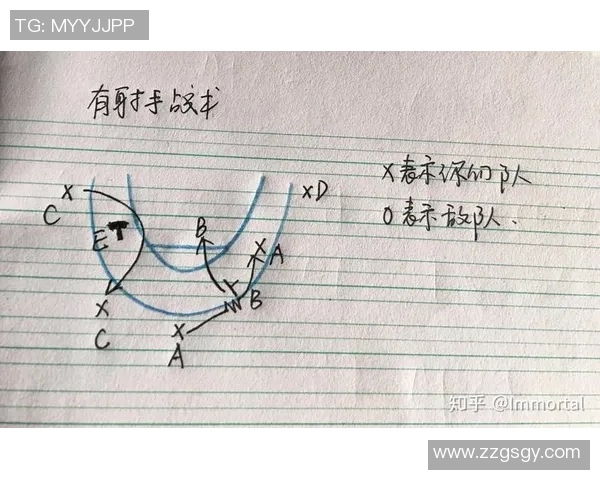 TG: MYYJJPP
有射手战术
X表示你的队
O表示敌队.
X
C
E
B
X
A
X D
X
C
X
A
B
知乎 @Immortal
www.zzgsgy.com